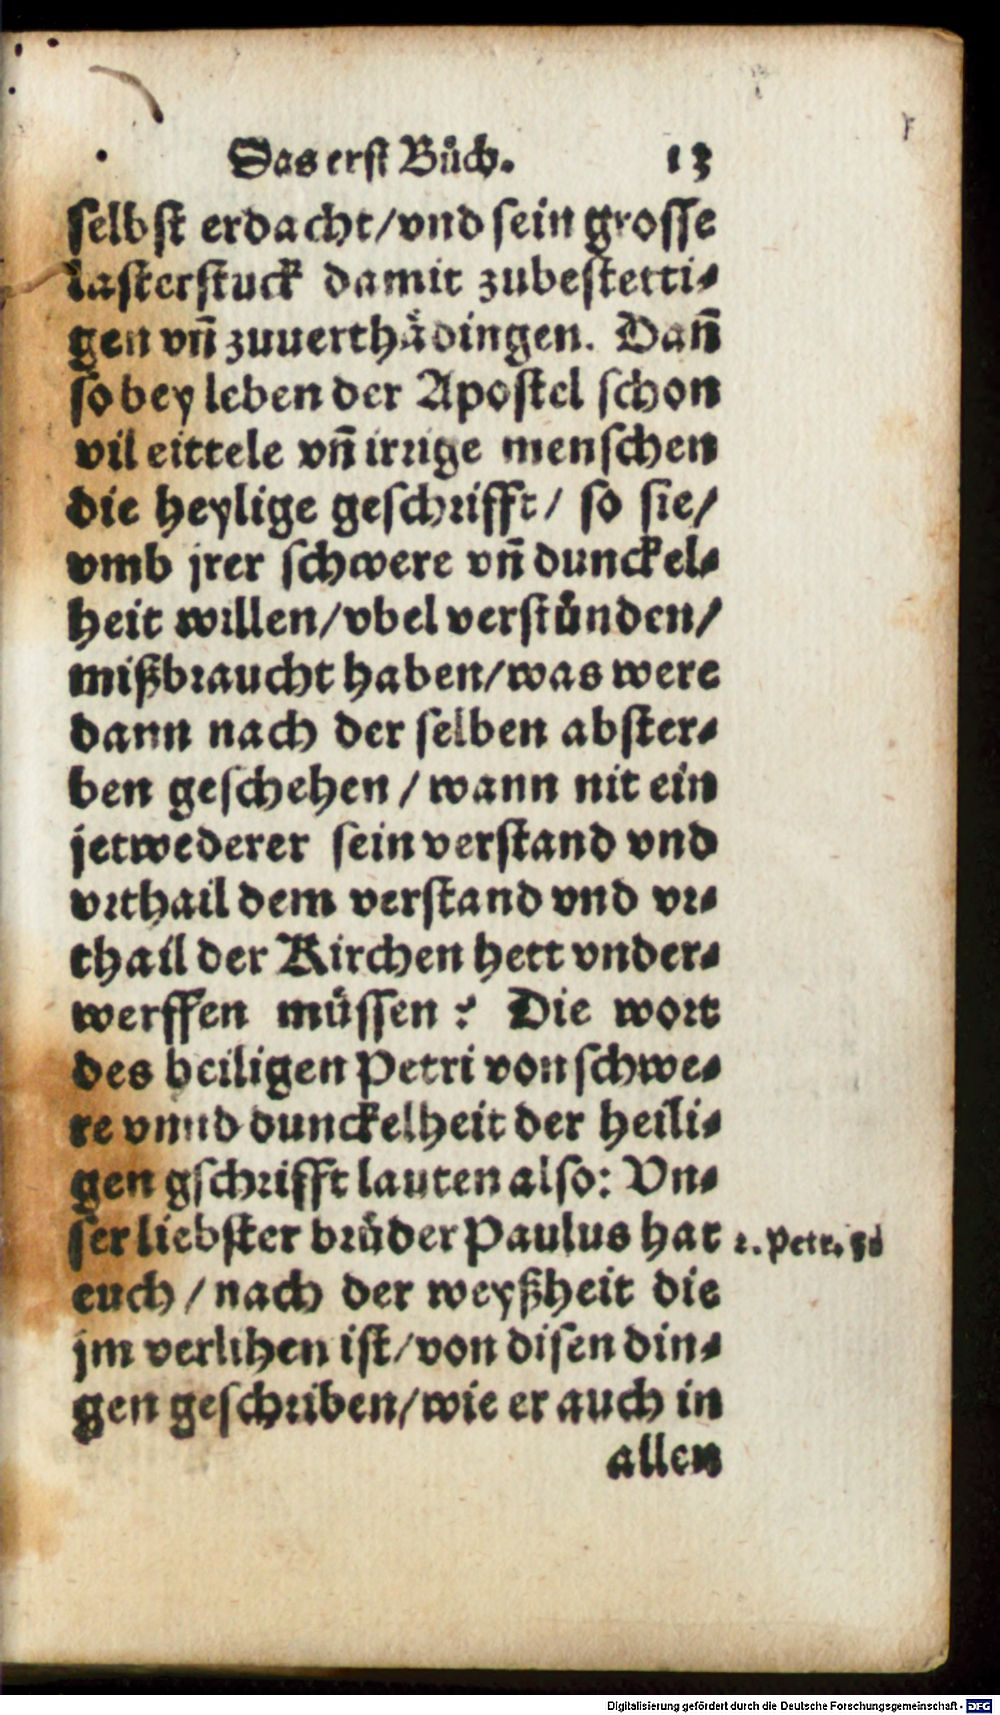 Das erst Bůch. 13
selbst erdacht/vnd sein grosse
lasterstuck damit zubestetti-
gen vn̄ zuuerthådingen. Dan̄
so bey leben der Apostel schon
vil eittele vn̄ irrige menschen
die heylige geschrifft/ so sie/
vmb jrer schwere vn̄ dunckel-
heit willen/vbel verstůnden/
mißbraucht haben/was were
dann nach der selben abster-
ben geschehen/wann nit ein
jetwederer sein verstand vnd
vrthail dem verstand vnd vr-
thail der Kirchen hett vnder-
werffen müssen? Die wort
des heiligen Petri von schwe-
re vnnd dunckelheit der heili-
gen gschrifft lauten also: Vn-
ser liebster brůder Paulus hat 2. Petr. 3.
euch/nach der weyßheit die
jm verlihen ist/von disen din-
gen geschriben/wie er auch in
allen
Digitalisierung gefördert durch die Deutsche Forschungsgemeinschaft - DFG